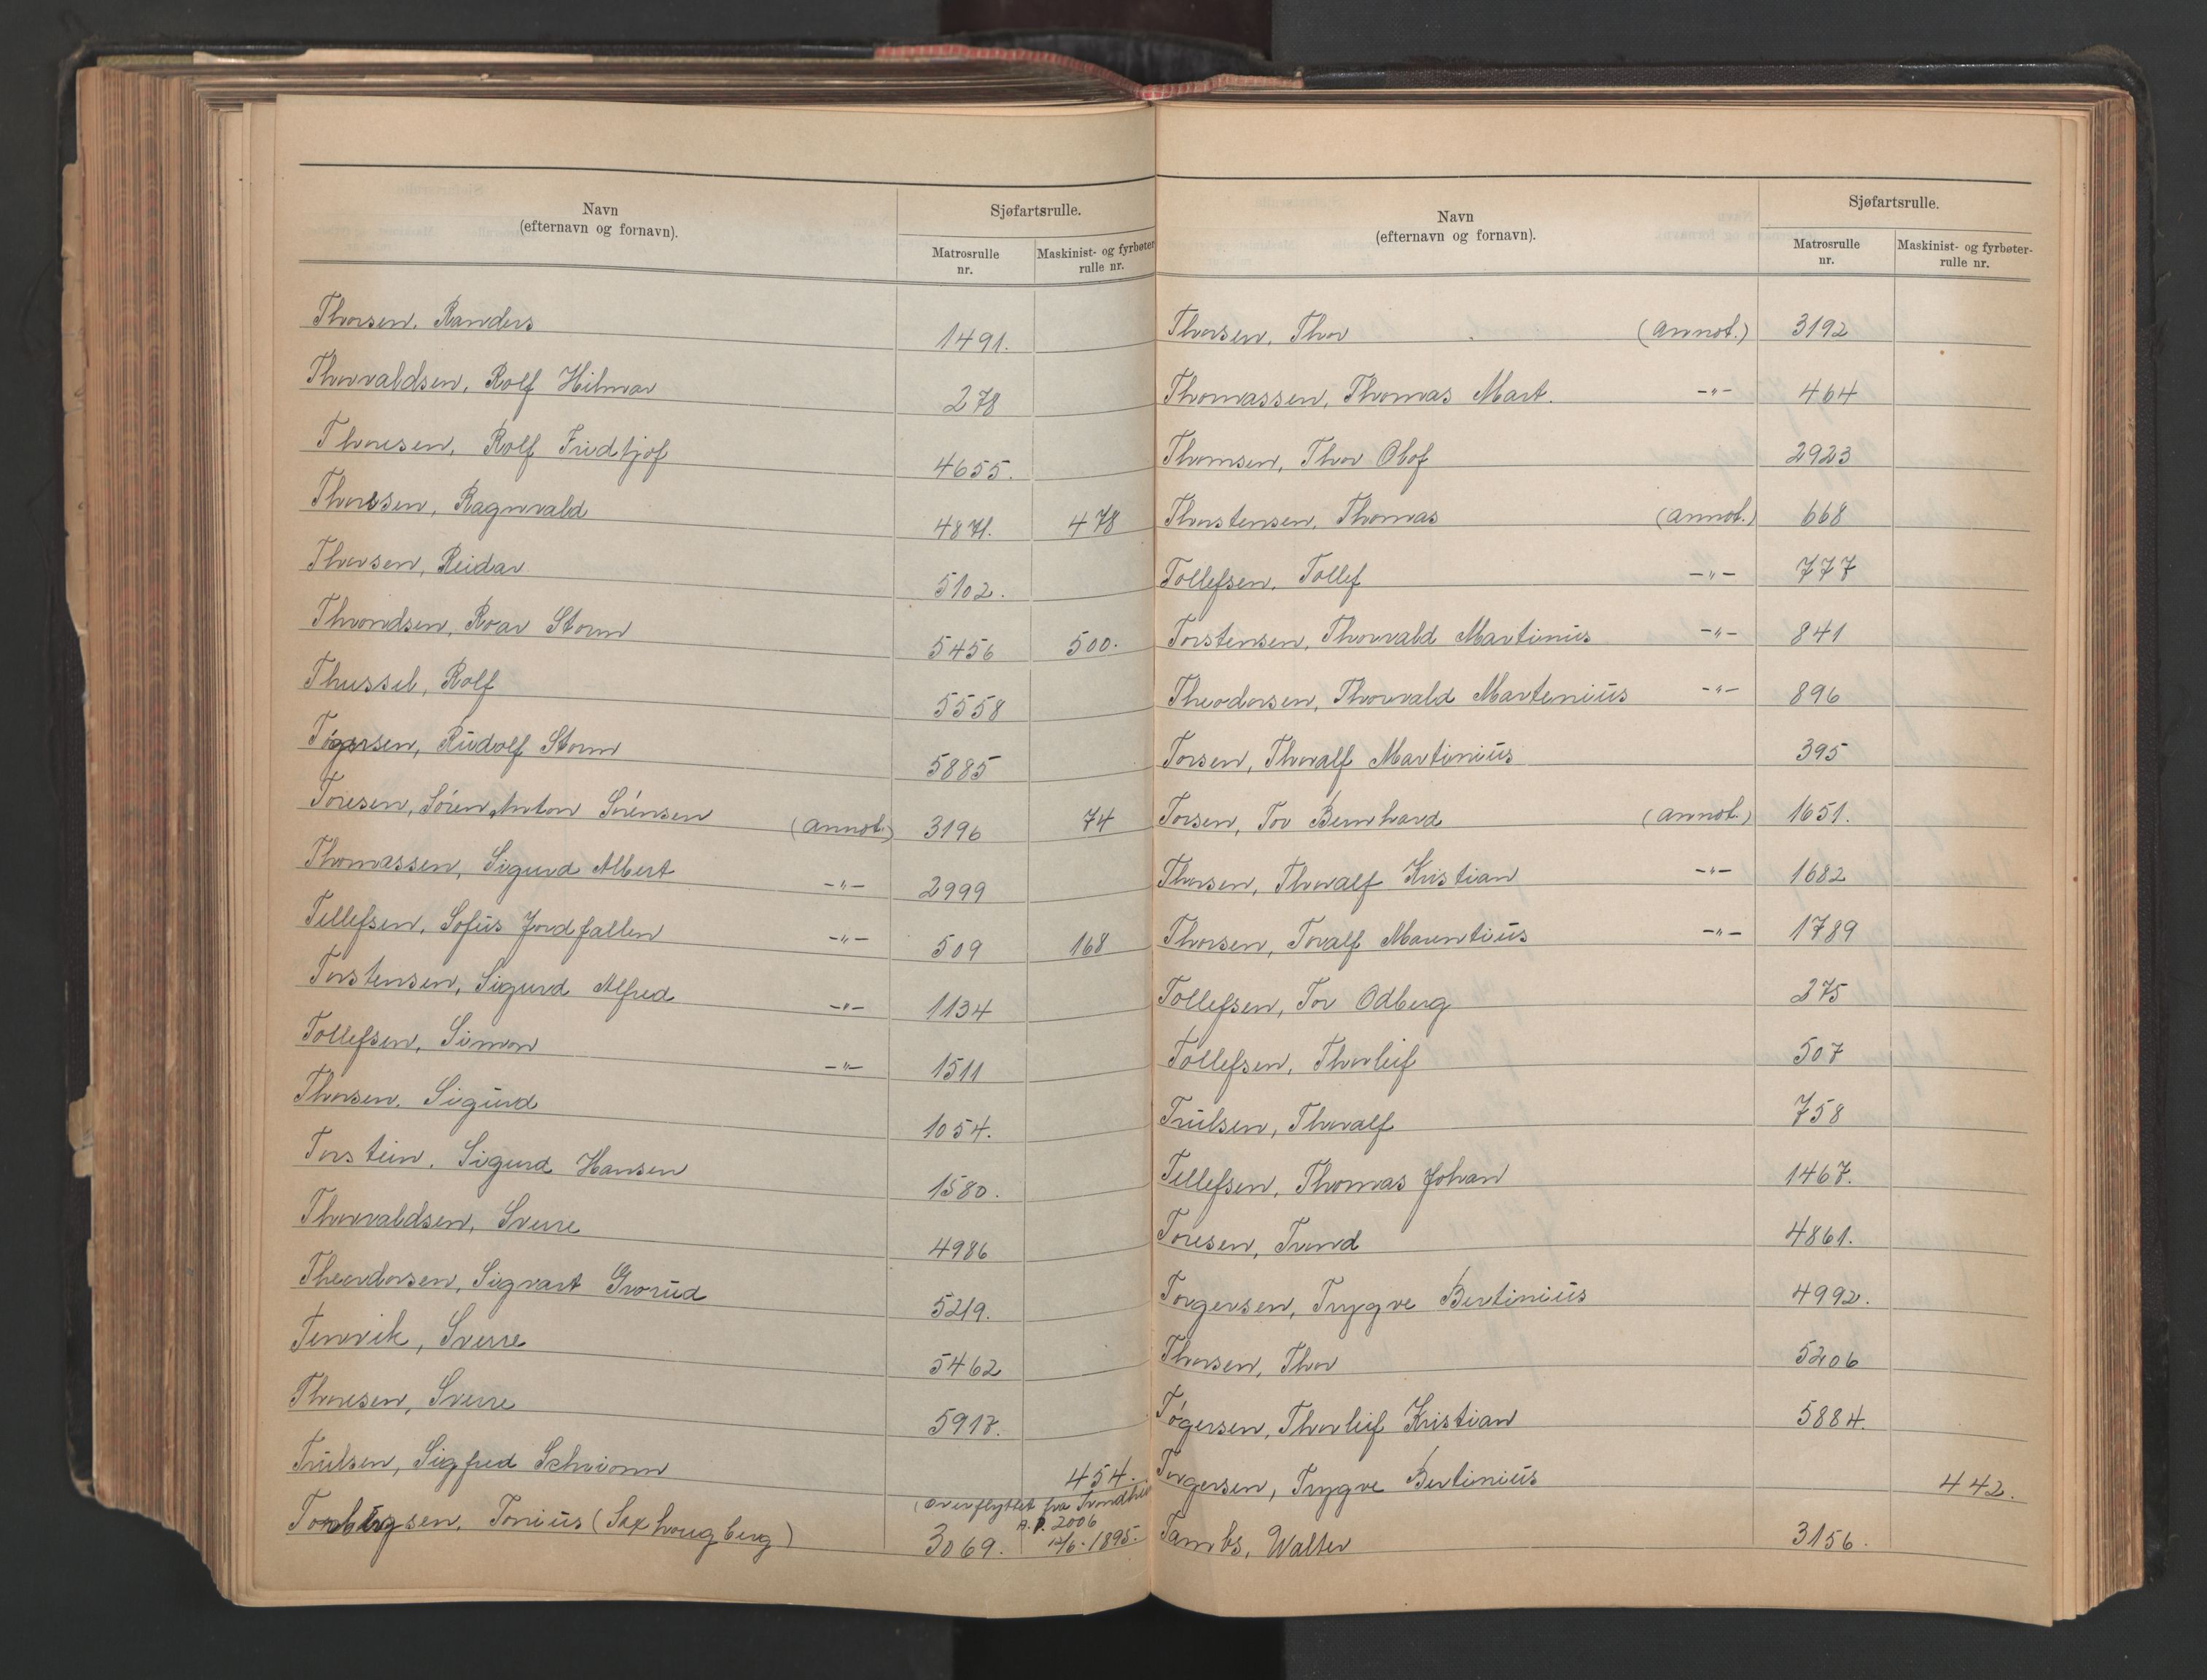 Navn
(efternavn og fornavn).
Sjøfartsrulle.
Matrosrulle
nr.
Maskinist- og fyrbøter
rulle nr.
Thorsen, Randers 1491.
Thorvaldsen, Rolf Hilmar 278
Thoresen, Rolf Fridtjof 4655.
Thoresen, Ragnvald 4871. 478
Thorsen, Reidar 5102.
Throndsen, Roar Storm 5456 500.
Thussel, Rolf 5558
Tøgersen, Rudolf Storm 5885
Toresen, Søren Anton Sørensen (annot.) 3196 74
Thomassen, Sigurd Albert -"- 2999
Tellefsen, Sofus Jordfallen -"- 509 168
Torstensen, Sigurd Alfred -"- 1134
Tollefsen, Simon -"- 1511
Thorsen, Sigurd 1054.
Torstein, Sigurd Hansen 1580.
Thorvaldsen, Sverre 4986
Theordorsen, Sigvart Grorud 5219.
Tenvik, Sverre 5462
Thoresen, Sverre 5917.
Trulsen, Sigfred 454.
(overflyttet fra
A.P. 2006
Tønius (Saxhougberg) 3069. 12/6-1895.
Navn
(efternavn og fornavn).
Sjøfartsrulle.
Matrosrulle
nr.
Maskinist- og fyrbøter-
rulle nr.
Thorsen, Thor (annot.) 3192
Thomassen, Thomas Mart. -"- 464
Thomsen, Thor Olof 2923
Thorstensen, Thomas (annot.) 668
Tollefsen, Tollef -"- 777
Torstensen, Thorvald Martinius -"- 841
Theodorsen, Thorvald Martenius -"- 896
Torsen, Thoralf Martinius 395
Torsen, Tor Bernhard (annot.) 1651.
Thorsen, Thoralf Kristian -"- 1682
Thorsen, Toralf Maurentius -"- 1789
Tollefsen, Tor Odberg 275
Tollefsen, Thorleif 507
Trulsen, Thoralf 758
Tellefsen, Thomas Johan 1467.
Toresen, Trond 4861.
Torgersen, Trygve Bertinius 4992.
Thorsen, Thor 5206
Tøgersen, Thorleif Kristian 5884.
Torgersen, Trygve Bertinius 442.
Tambs, Walter 3156.